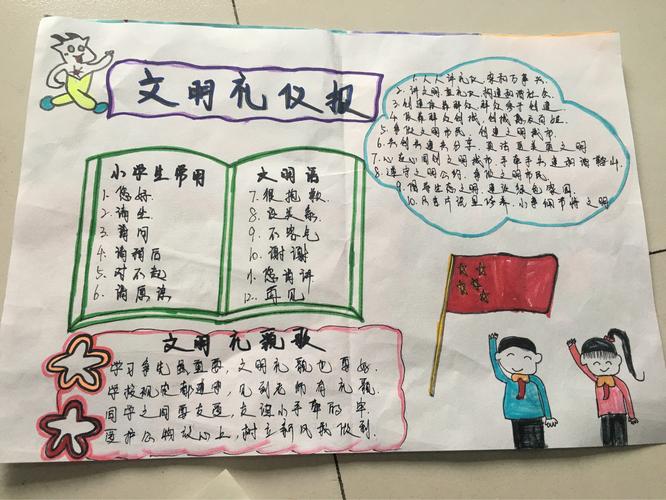 文明礼仪报
小学生常用
1. 您好
2. 请坐
3. 请问
4. 请稍后
5. 对不起
6. 请原谅
文明语
7. 很抱歉
8. 没关系
9. 不客气
10. 谢谢
11. 您请讲
12. 再见
1. 人人讲礼仪 家和万事兴.
2. 讲文明重礼仪, 构建和谐社会.
3. 创建依靠群众, 群众参于创建.
4. 依靠群众创城, 创城惠及百姓.
5. 争做文明市民, 创建文明城市.
6. 共创共建共分享, 灵活更美更文明
7. 心连心同创文明城市, 手牵手共建和谐
8. 遵守文明公约, 争做文明市民.
9. 倡导生态文明, 建设绿色家园.
文明礼貌歌
学习争先最重要, 文明礼貌也要好.
学校规定都遵守, 见到老师有礼貌.
同学之间要友爱, 友谊小手牵的牢.
爱护公物放心上, 树立新风我做到.